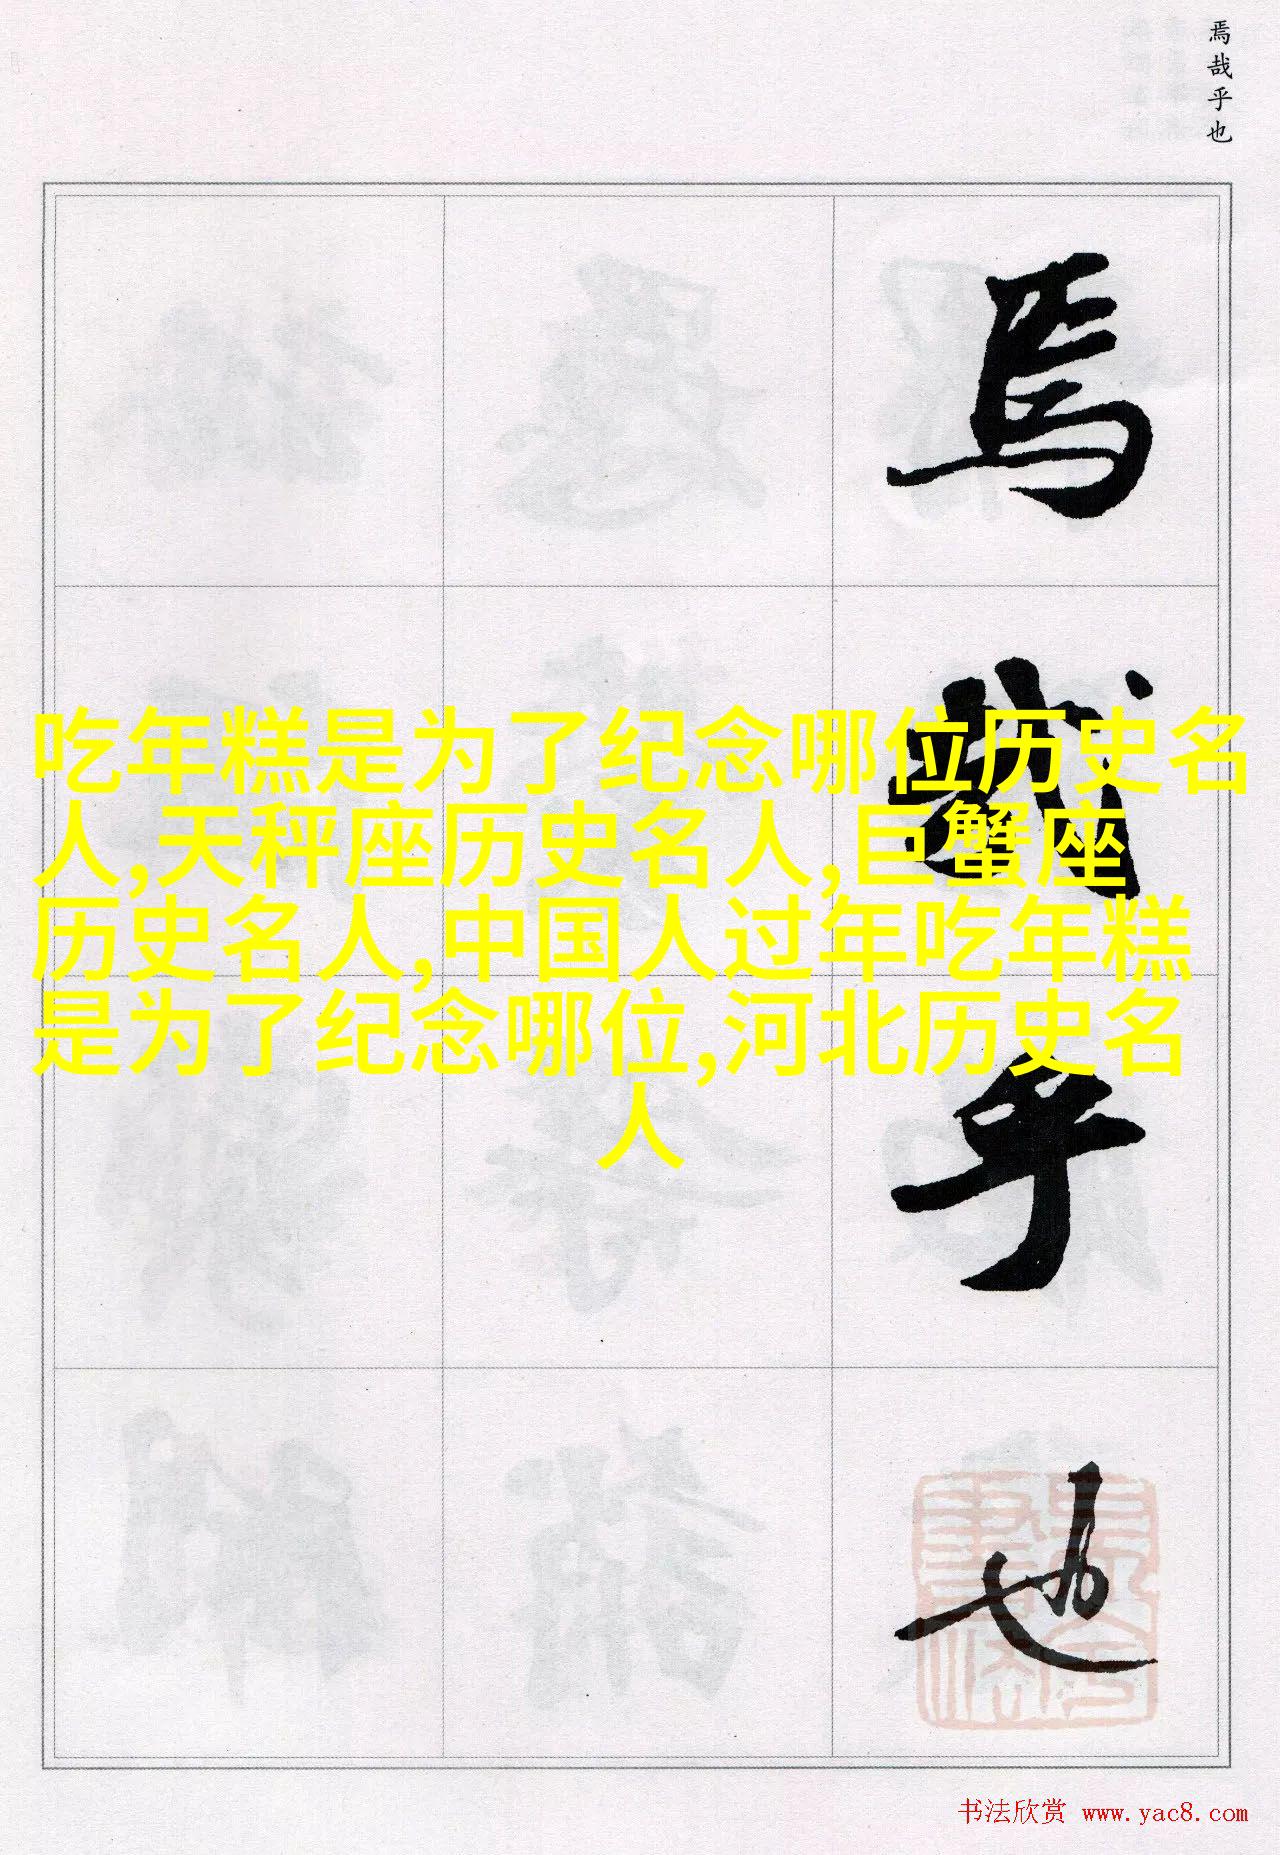 焉哉乎也
焉
哉
乎
也
吃年糕是为了纪念哪位历史名
人,天秤座历史名人,巨蟹座
历史名人,中国人过年吃年糕
是为了纪念哪位,河北历史名
人
书法欣赏 www.yac8.com